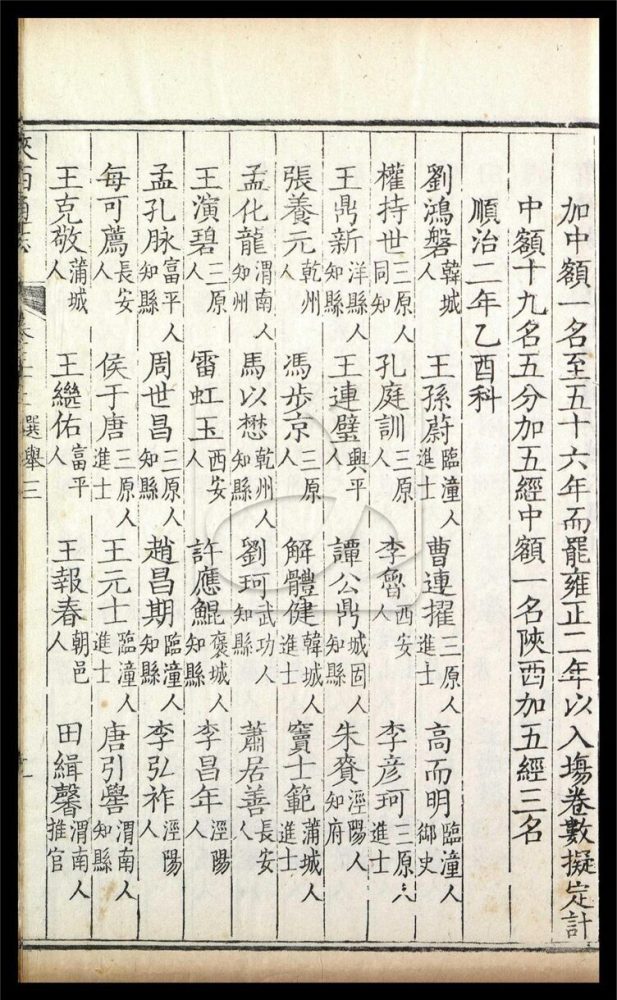 加中額一名至五十六年而罷雍正二年以入場卷數擬定計
中額十九名五分加五經中額一名陝西加五經三名
順治二年乙酉科
劉鴻磐韓城人 王孫蔚臨潼人進士 曹連擢三原人進士 高而明臨潼人御史
權持世三原人同知 孔庭訓三原人 李魯西安人 李彦珂三原人進士
王鼎新洋縣人知縣 王連璧興平人 譚公鼎城固人知縣 朱賚涇陽人知府
張養元乾州人 馮步京三原人 解體健韓城人進士 竇士範蒲城人進士
孟化龍渭南人知州 馬以懋乾州人知縣 劉珂武功人知縣 蕭居善長安人
王演碧三原人 雷虹玉西安人 許應鯤褒城人知縣 李昌年涇陽人
孟孔脉富平人知縣 周世昌三原人知縣 趙昌期臨潼人知縣 李弘祚涇陽人
每可薦長安人 侯于唐三原人進士 王元士臨潼人進士 唐引嚳渭南人知縣
王克敬蒲城人 王繼佑富平人 王報春朝邑人 田緝馨渭南人推官
陝西通志 選舉三